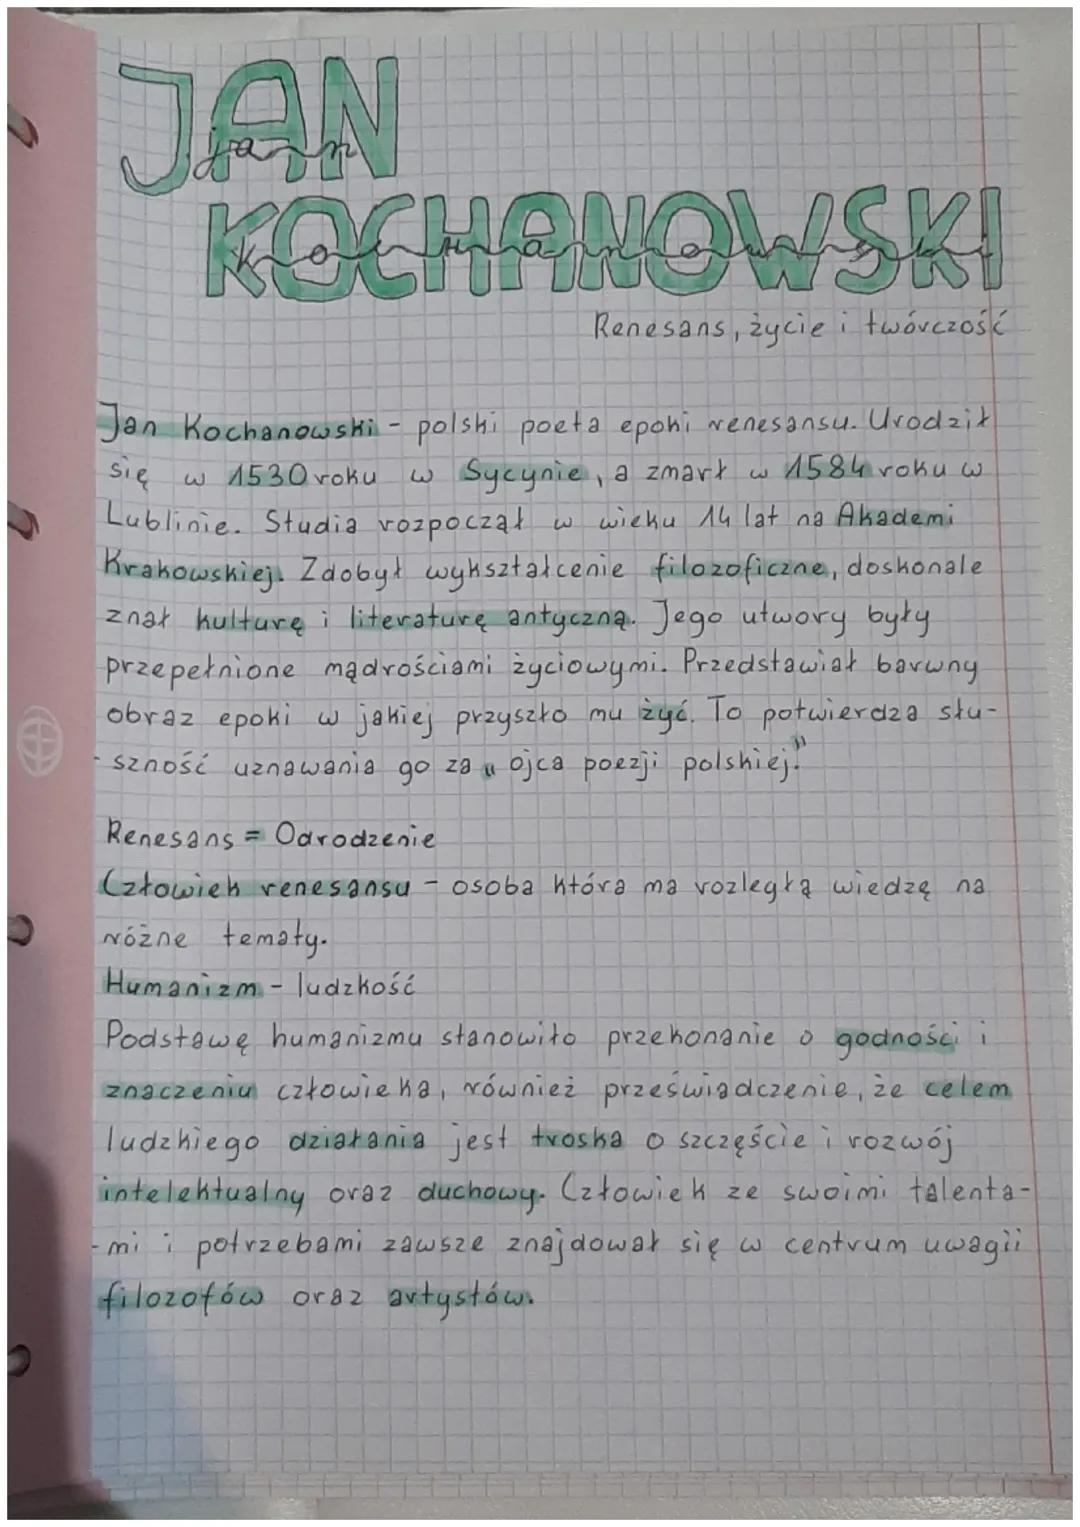 JAN
jan
KOCHANOWSKI
kochanowski
Renesans, życie i twórczość
Jan Kochanowski - polski poeta epoki renesansu. Urodził
się w 1530 roku w Sycynie, a zmarł w 1584 roku w
Lublinie. Studia rozpoczął w wieku 14 lat na Akademi
Krakowskiej. Zdobył wykształcenie filozoficzne, doskonale
znał kulturę i literaturę antyczną. Jego utwory były
przepełnione mądrościami życiowymi. Przedstawiał barwny
obraz epoki w jakiej przyszło mu żyć. To potwierdza słu-
- szność uznawania go za „ojca poezji polskiej."
Renesans = Odrodzenie
Człowiek renesansu - osoba która ma rozległą wiedzę na
różne tematy.
Humanizm - ludzkość
Podstawę humanizmu stanowiło przekonanie o godności i
znaczeniu człowieka, również przeświadczenie, że celem
ludzkiego działania jest troska o szczęście i rozwój
intelektualny oraz duchowy. Człowiek ze swoimi talenta-
-mi i potrzebami zawsze znajdował się w centrum uwagii
filozofów oraz artystów.